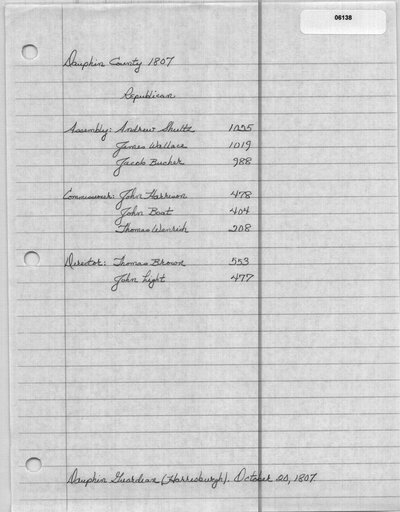 06138
Dauphin County 1807
Republican
Assembly: Andrew Shultz 1025
James Wallace 1019
Jacob Bucher 988
Commissioner: John Harrison 478
John Boat 404
Thomas Wenrich 208
Director: Thomas Brown 553
John Light 477
Dauphin Guardian (Harrisburgh). October 20, 1807.